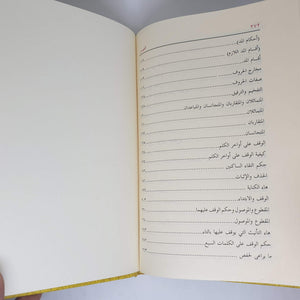 ٢٧٢
(أحكام المد)
(أقسام المد اللازم)
أقسام المد
مخارج الحروف
صفات الحروف
التفخيم والترقيق
المتماثلان والمتقاربان والمتجانسان والمتباعدان
المتماثلان
المتقاربان
المتجانسان
الوقف على أواخر الكلم
كيفية الوقف على أواخر الكلم
حكم التقاء الساكنين
الحذف والإثبات
هاء الكناية
الوقف والابتداء
المقطوع والموصول وحكم الوقف عليهما
المقطوع والموصول
هاء التأنيث التي يوقف عليها بالتاء
حكم الوقف على الكلمات السبع
ما يراعى لحفص